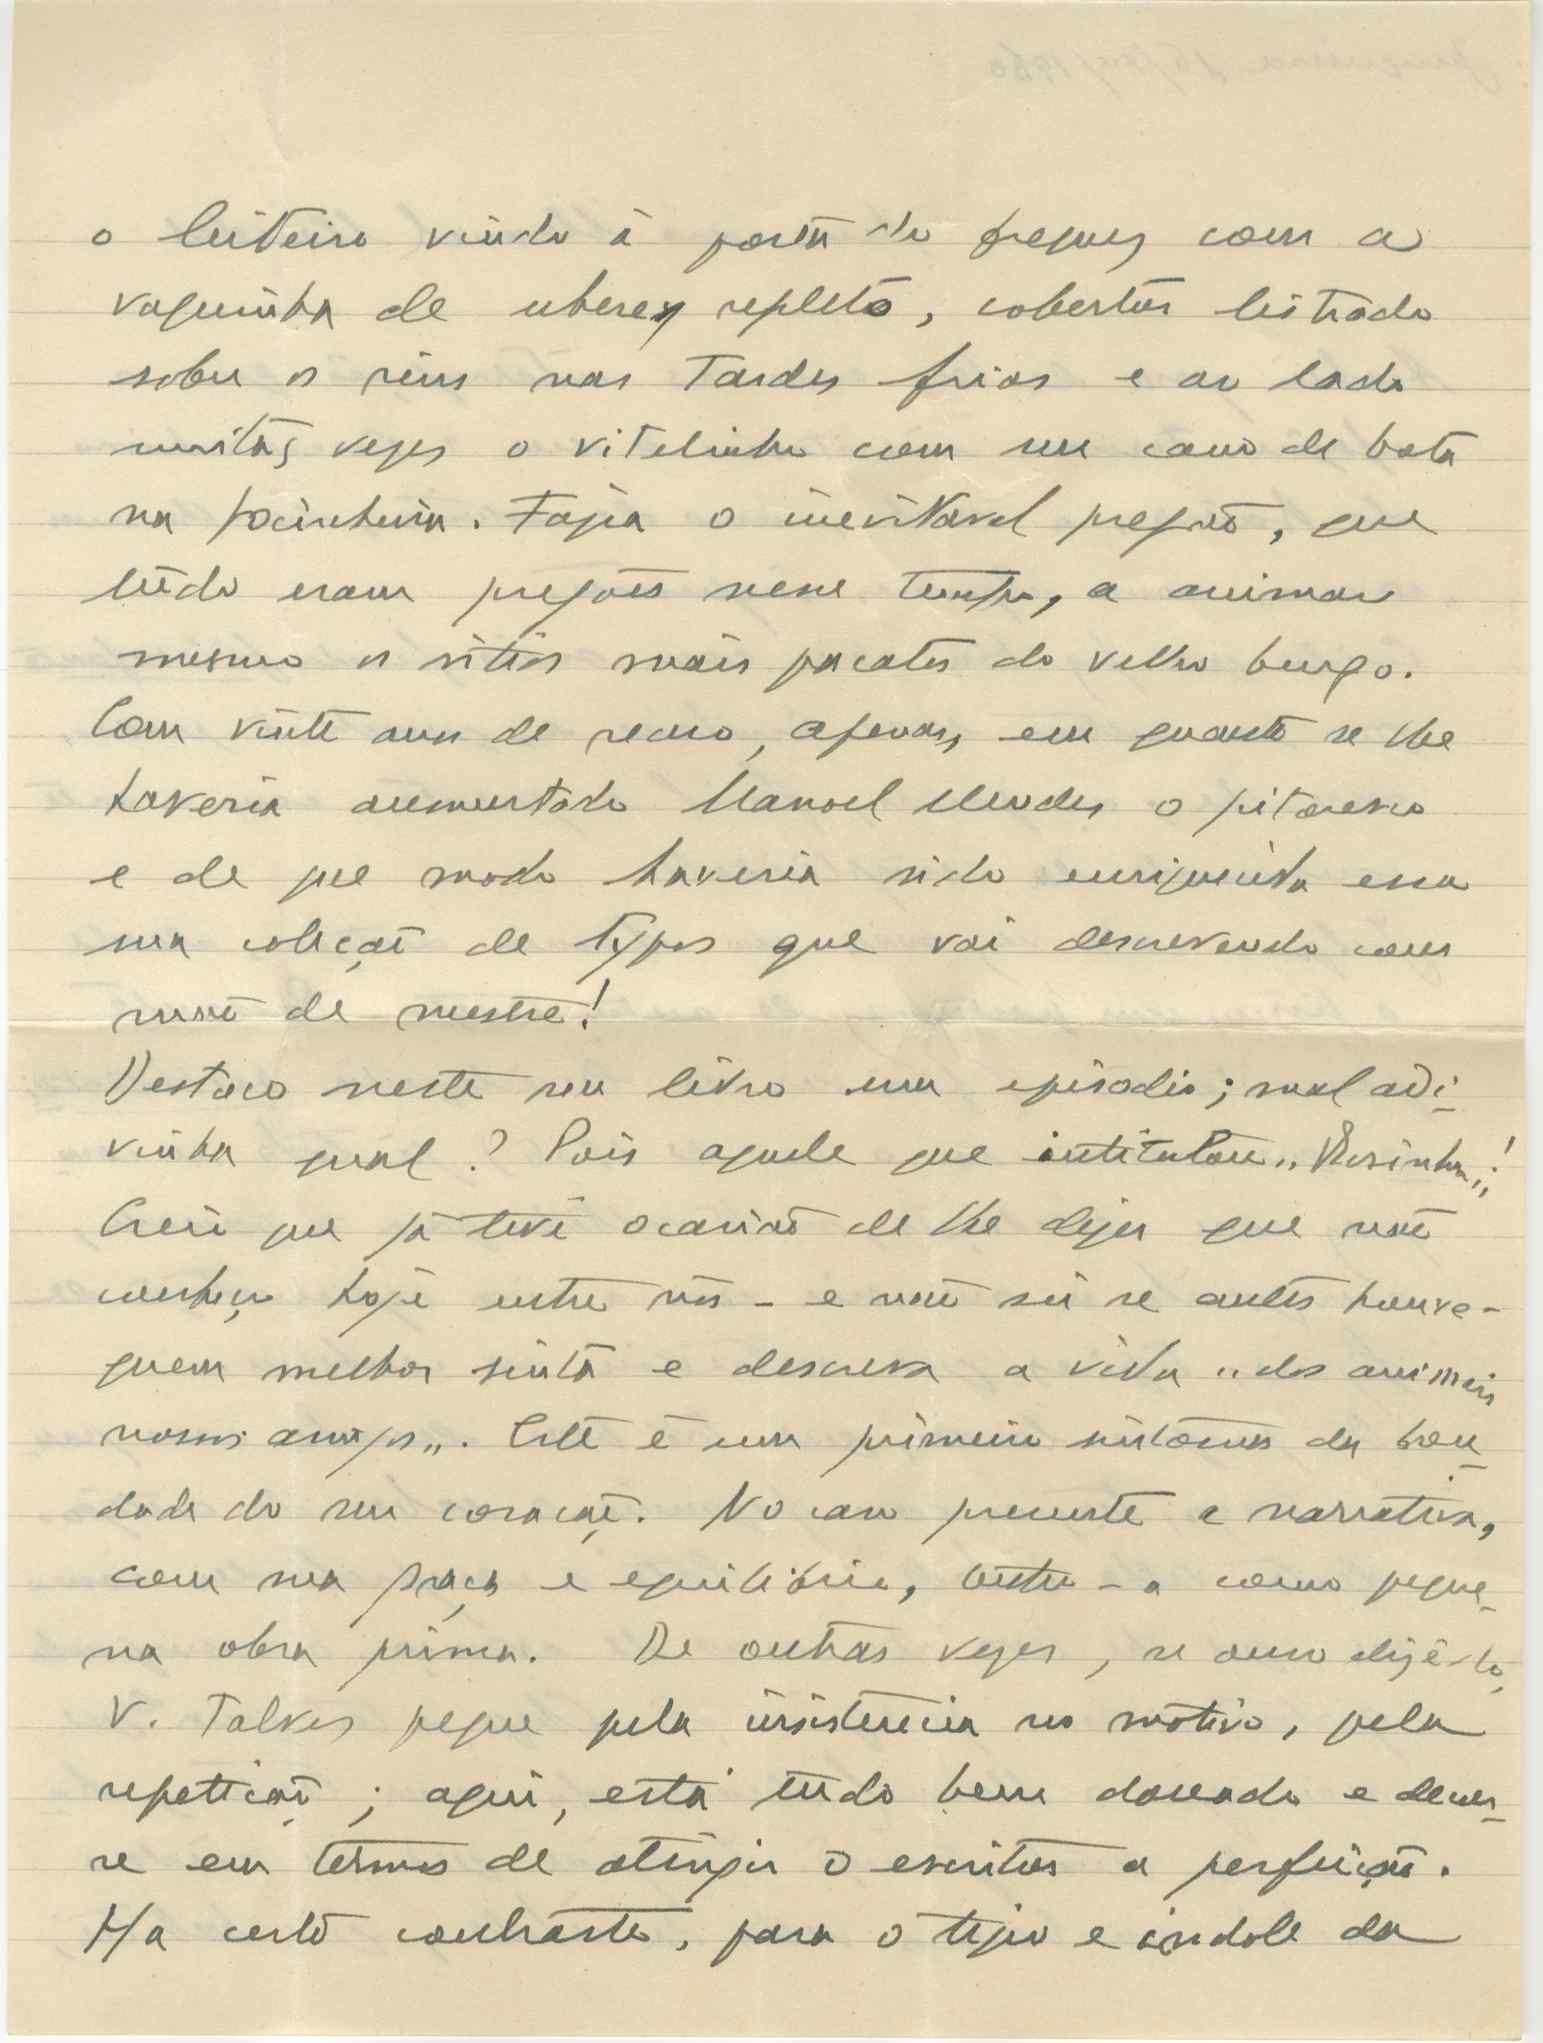 o leiteiro vindo á porta do freguez com a
vaquinha de uberes repletos, cobertor listrado
sobre os rins nas tardes frias e ao lado
muitas vezes o vitelinho com um cano de bota
na focinheira. Fazia o inevitavel pregão, que
tudo eram pregões nesse tempo, a animar
mesmo os sitios mais pacatos do velho burgo.
Com vinte anos de recuo, apenas, em quanto se lhe
haveria aumentado Manoel Mendes o pitoresco
e de que modo haveria sido enriquecida essa
sua coleção de typos que vai descrevendo com
mão de mestre!
Destaco neste seu livro um episodio; mal adi-
vinha qual? Pois aquele que intitulou "
Creio que já tive ocasião de lhe dizer que não
conheço hoje entre nós - e não sei se antes houve -
quem melhor sinta e descreva a vida "dos animais
nossos amigos". Este é um primeiro sintoma da bon-
dade do seu coração. No caso presente a narrativa,
com sua graça e equilibrio, -a como peque-
na obra prima. De outras vezes, se ouso dizê-lo,
V. Talvez peque pela insistencia no motivo, pela
repetição; aqui, está tudo bem doseado e
se em termos de atingir o escritor a perfeição.
Ha certo contraste, para o tipo e indole da